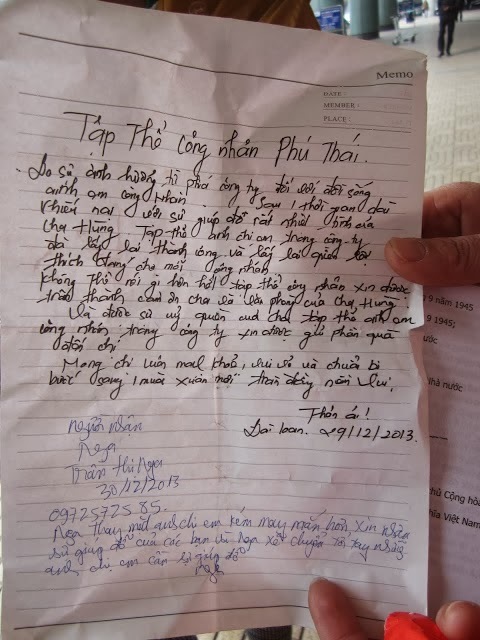 Memo
DATE :
MEMBER :
PLACE :
Tập Thể công nhân Phú Thái.
Do sự ảnh hưởng từ phá công ty đối với đời sống
anh em công nhân. Sau 1 thời gian dài
khiếu nại với sự giúp đỡ rất nhiệt tình của
cha Hùng Tập thể anh chị em trong công ty
đã lấy lại thành công và lấy lại quyền lợi
thích đáng cho mỗi công nhân
không thể nói gì hơn hết tập thể công nhân xin được
trân thành cảm ơn cha và văn phòng của cha Hùng.
Và được sự uỷ quyền của cha tập thể anh em
công nhân trong công ty xin được gửi phần quà
đến chị
Mong chị luôn mạnh khoẻ, vui vẻ và chuẩn bị
bước sang 1 mùa xuân mới tràn đầy niềm vui.
Thân ái!
Đài loan. 29/12/2013.
người nhận
Nga
Trần thị Nga
30/12/2013
0972572585.
Nga thay mặt anh chị em kém may mắn hơn xin nhận
sự giúp đỡ của các bạn và Nga sẽ chuyển tới tay những
anh, chị em cần sự giúp đỡ
Nga
9 năm 1945
9 1945;
nước
nhà nước
chủ Cộng hòa
nghĩa Việt Nam